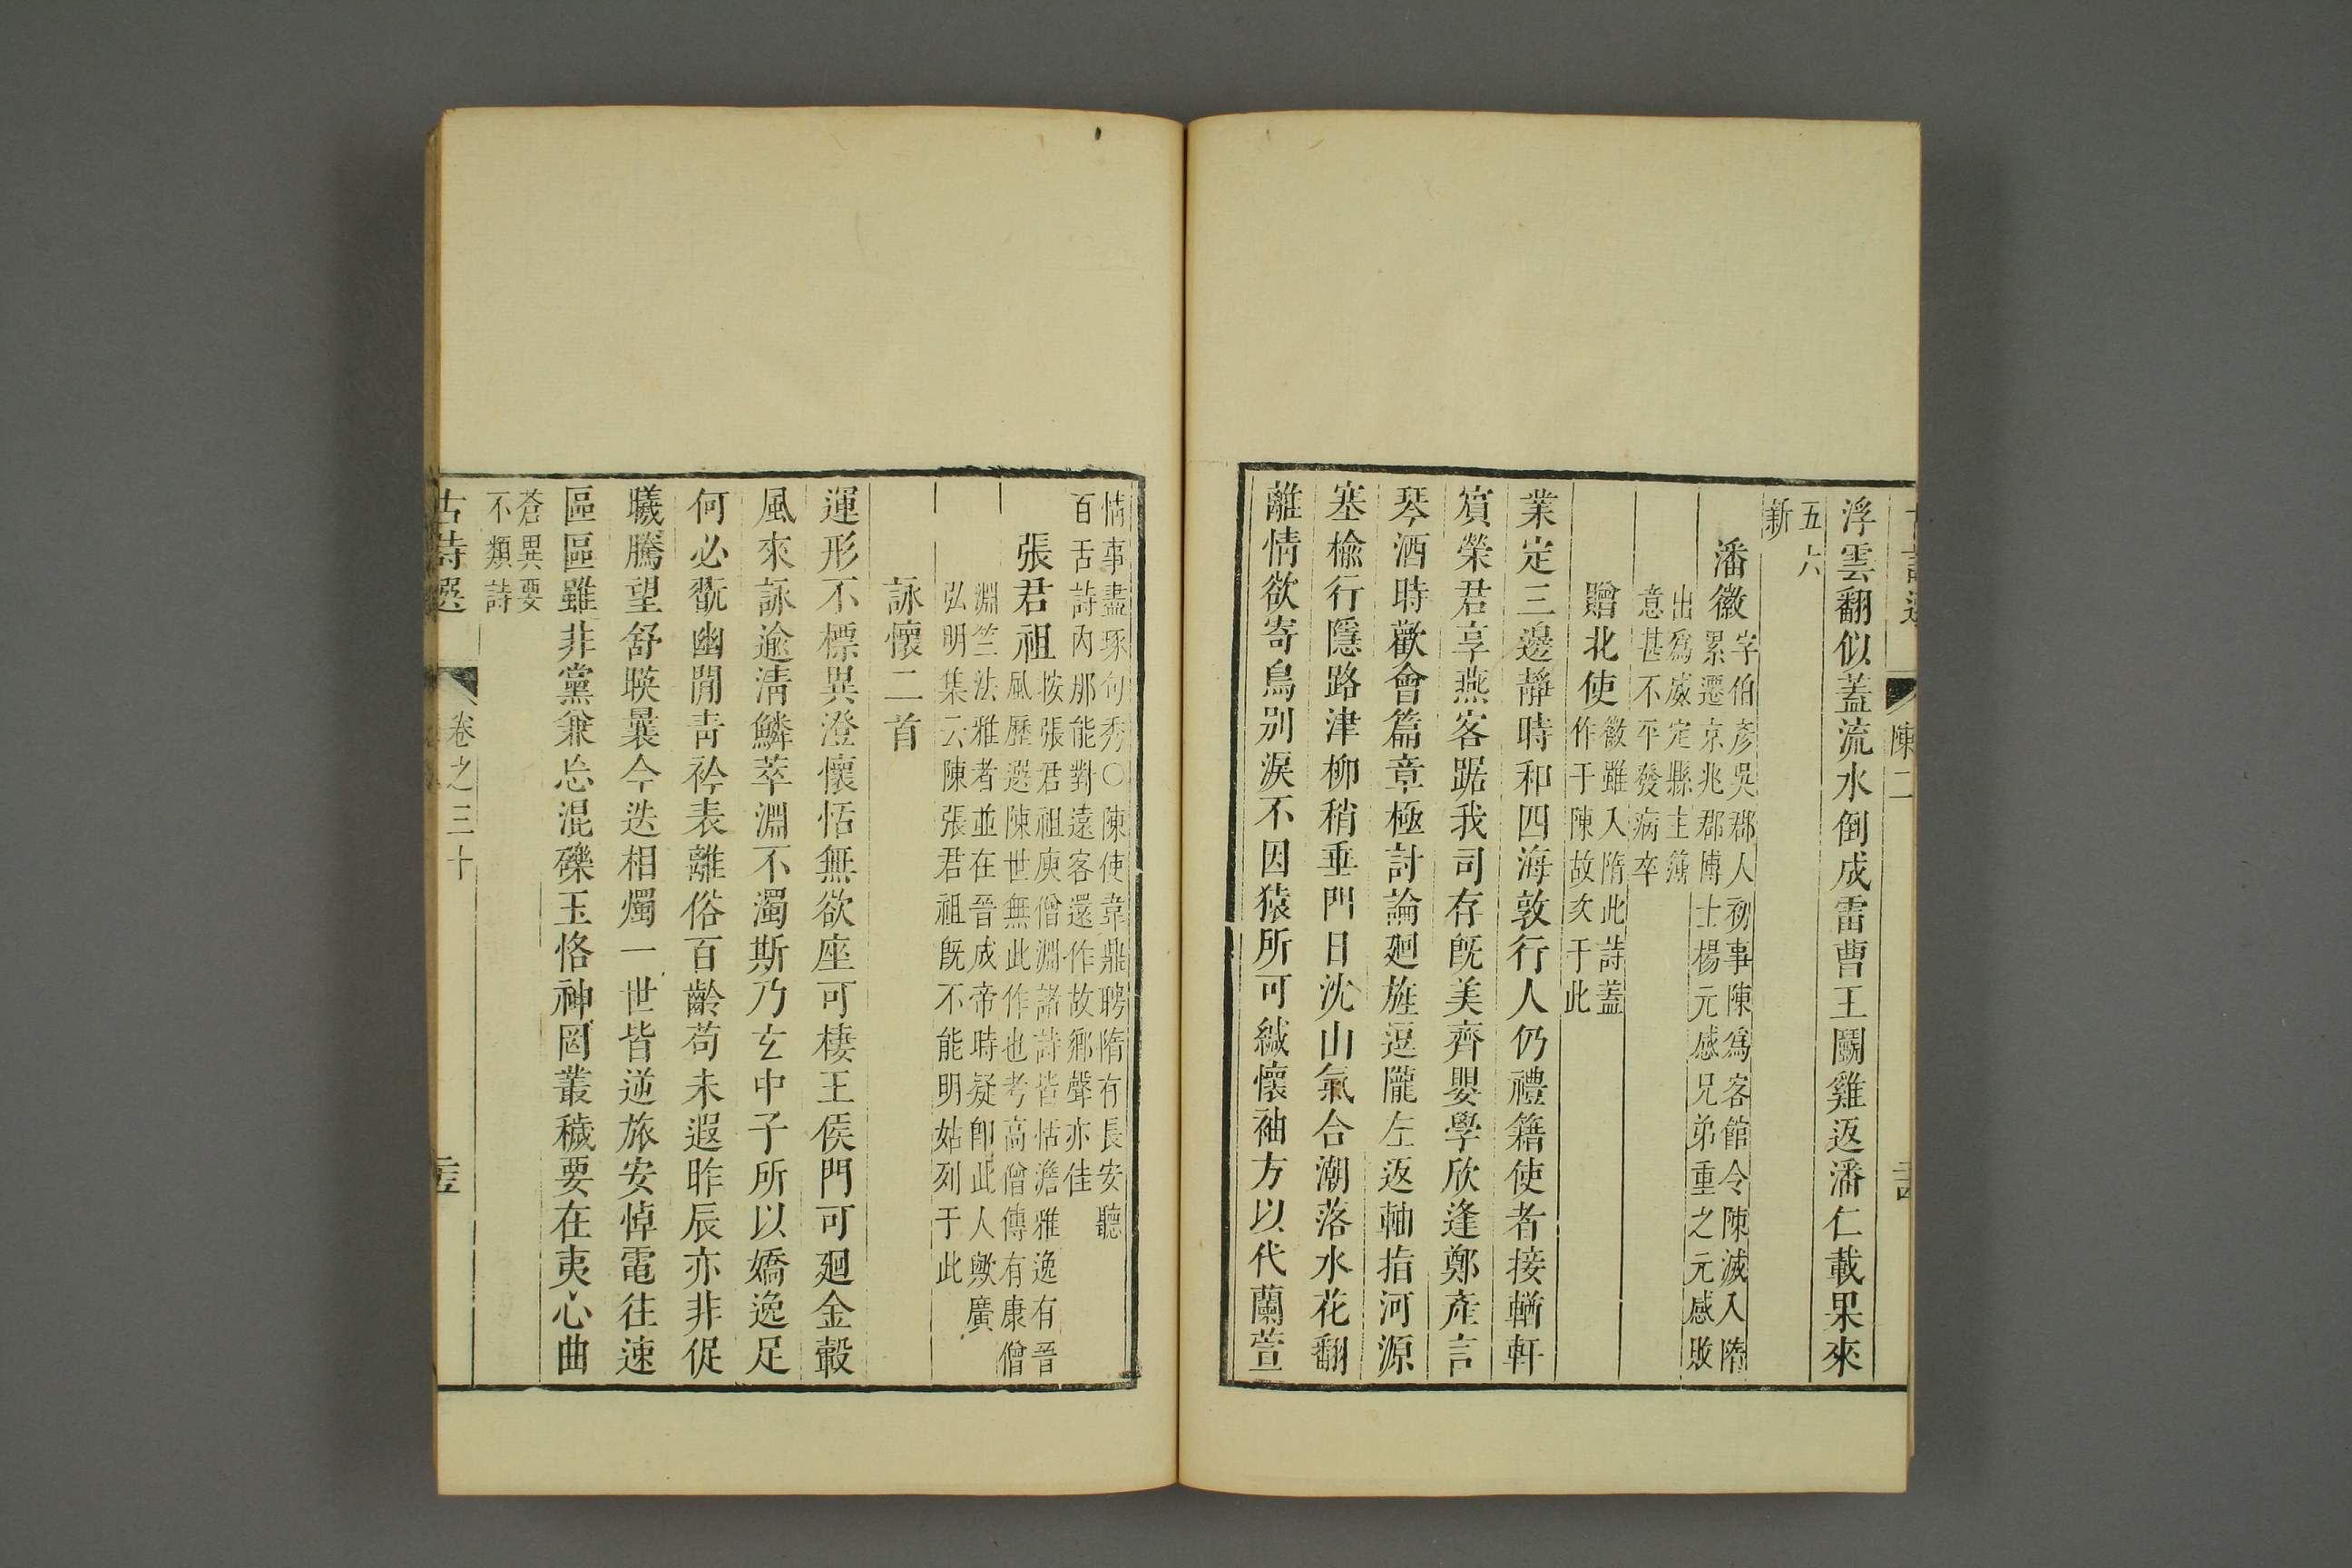 浮雲翻似蓋流水倒成雷曹王鬭雞返潘仁載果來
五六
新
潘徽
字伯彥吳郡人初事陳爲客館令陳滅入隋
累遷京兆郡博士楊元感兄弟重之元感敗
出爲威定縣主簿
意甚不平發病卒
贈北使
徽雖入隋此詩蓋
作于陳故次于此
業定三邊靜時和四海敦行人仍禮籍使者接輶軒
賓榮君享燕客踞我司存旣美齊嬰學欣逢鄭產言
琴酒時歡會篇章極討論廻旌逗隴左返軸指河源
塞楡行隱路津柳稍垂門日沈山氣合潮落水花翻
離情欲寄鳥别淚不因猿所可緘懷袖方以代蘭萱
情事盡琢句秀○陳使韋鼎聘隋有長安聽
百舌詩內那能對遠客還作故鄉聲亦佳
張君祖
按張君祖庾僧淵諸詩皆恬澹雅逸有晉
風歷選陳世無此作也考高僧傳有康僧
淵竺法雅者並在晉成帝時疑卽此人歟廣
弘明集云陳張君祖旣不能明姑列于此
詠懷二首
運形不標異澄懷恬無欲座可棲王侯門可廻金轂
風來詠逾淸鱗萃淵不濁斯乃玄中子所以嬌逸足
何必翫幽閒靑衿表離俗百齡苟未遐昨辰亦非促
曦騰望舒暎曩今迭相燭一世皆逆旅安悼電往速
區區雖非黨兼忘混礫玉恪神罔叢穢要在夷心曲
蒼異要
不類詩
古詩選
卷之三十